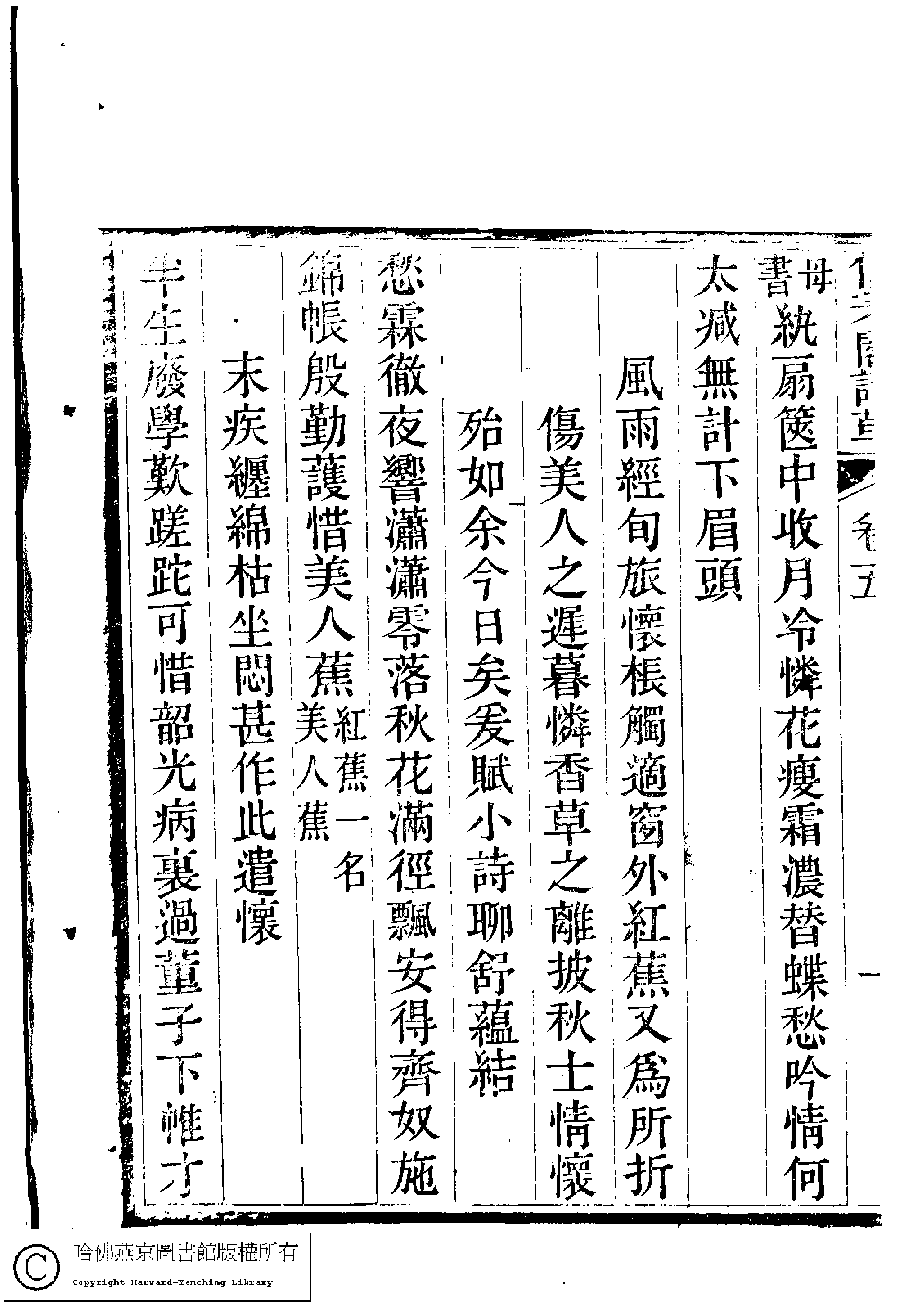 卷五
一
母書紈扇篋中收月冷憐花瘦霜濃替蝶愁吟情何
太減無計下眉頭
風雨經旬旅懷棖觸適窗外紅蕉又為所折
傷美人之遲暮憐香草之離披秋士情懷
殆如余今日矣爰賦小詩聊舒蘊結
愁霖徹夜響瀟瀟零落秋花滿徑飄安得齊奴施
錦帳殷勤護惜美人蕉紅蕉一名美人蕉
末疾纏綿枯坐悶甚作此遣懷
半生廢學歎蹉跎可惜韶光病裏過董子下帷才
哈佛燕京圖書館版權所有
Copyright Harvard-Yenching Library